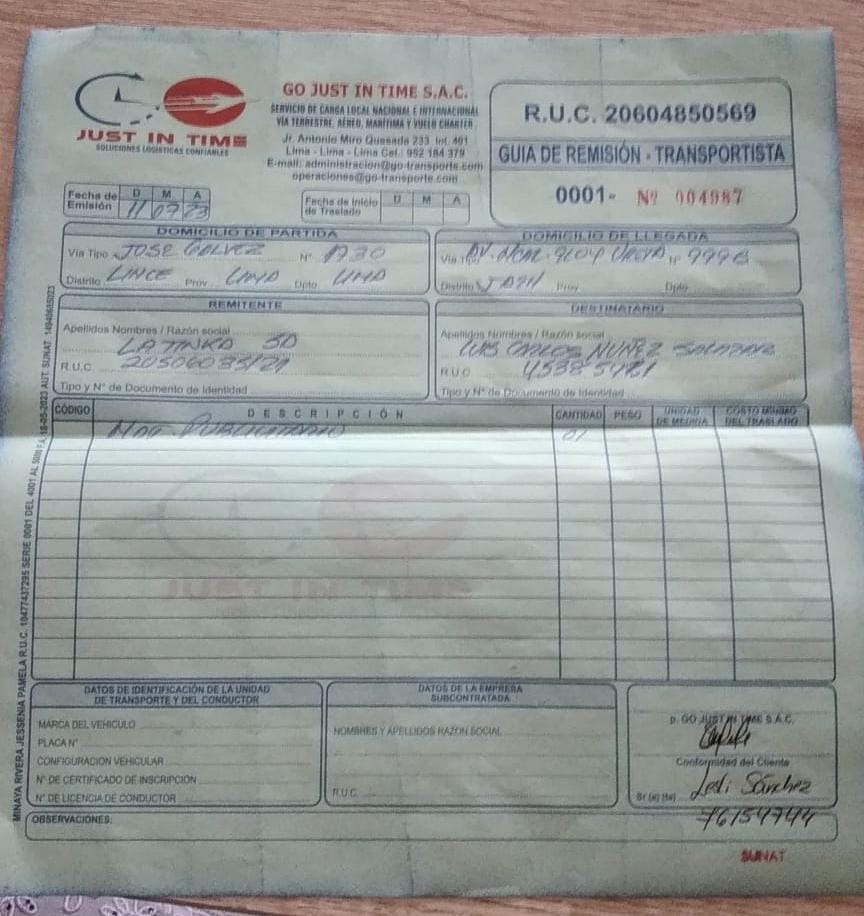 JUST IN TIME
SOLUCIONES LOGISTICAS CONFIABLES
GO JUST IN TIME S.A.C.
SERVICIO DE CARGA LOCAL NACIONAL E INTERNACIONAL
VÍA TERRESTRE, AÉREO, MARÍTIMA Y VUELO CHARTER
Jr. Antonio Miro Quesada 233 Int. 401
Lima - Lima - Lima Cel.: 952 184 379
E-mail: administracion@go-transporte.com
operaciones@go-transporte.com
R.U.C. 20604850569
GUIA DE REMISIÓN - TRANSPORTISTA
0001- Nº 004987
Fecha de Emisión D M A
11 07 23
Fecha de Inicio de Traslado D M A
DOMICILIO DE PARTIDA
Vía Tipo JOSE GALVEZ Nº 1730
Distrito LINCE Prov. LIMA Dpto. LIMA
DOMICILIO DE LLEGADA
Vía Tipo AV. Nº
Distrito Prov. Dpto.
REMITENTE
Apellidos Nombres / Razón social
LA TINKA SA
R.U.C.
Tipo y Nº de Documento de Identidad
DESTINATARIO
Apellidos Nombres / Razón social
LUIS CARLOS NUÑEZ
R.U.C.
Tipo y Nº de Documento de Identidad
CÓDIGO DESCRIPCIÓN CANTIDAD PESO UNIDAD DE MEDIDA COSTO MÍNIMO DEL TRASLADO
PUBLICITARIO 01
JUST IN TIME
DATOS DE IDENTIFICACIÓN DE LA UNIDAD
DE TRANSPORTE Y DEL CONDUCTOR
MARCA DEL VEHICULO
PLACA Nº
CONFIGURACIÓN VEHICULAR
Nº DE CERTIFICADO DE INSCRIPCIÓN
Nº DE LICENCIA DE CONDUCTOR
DATOS DE LA EMPRESA
SUBCONTRATADA
NOMBRES Y APELLIDOS RAZÓN SOCIAL
R.U.C.
p. GO JUST IN TIME S.A.C.
Conformidad del Cliente
Sr (a) (ta) Lesli Sánchez
76154744
OBSERVACIONES:
SUNAT
MINAYA RIVERA JESSENIA PAMELA R.U.C. 10477437295 SERIE 0001 DEL 4001 AL 5000 F.A. 18-05-2023 AUT. SUNAT